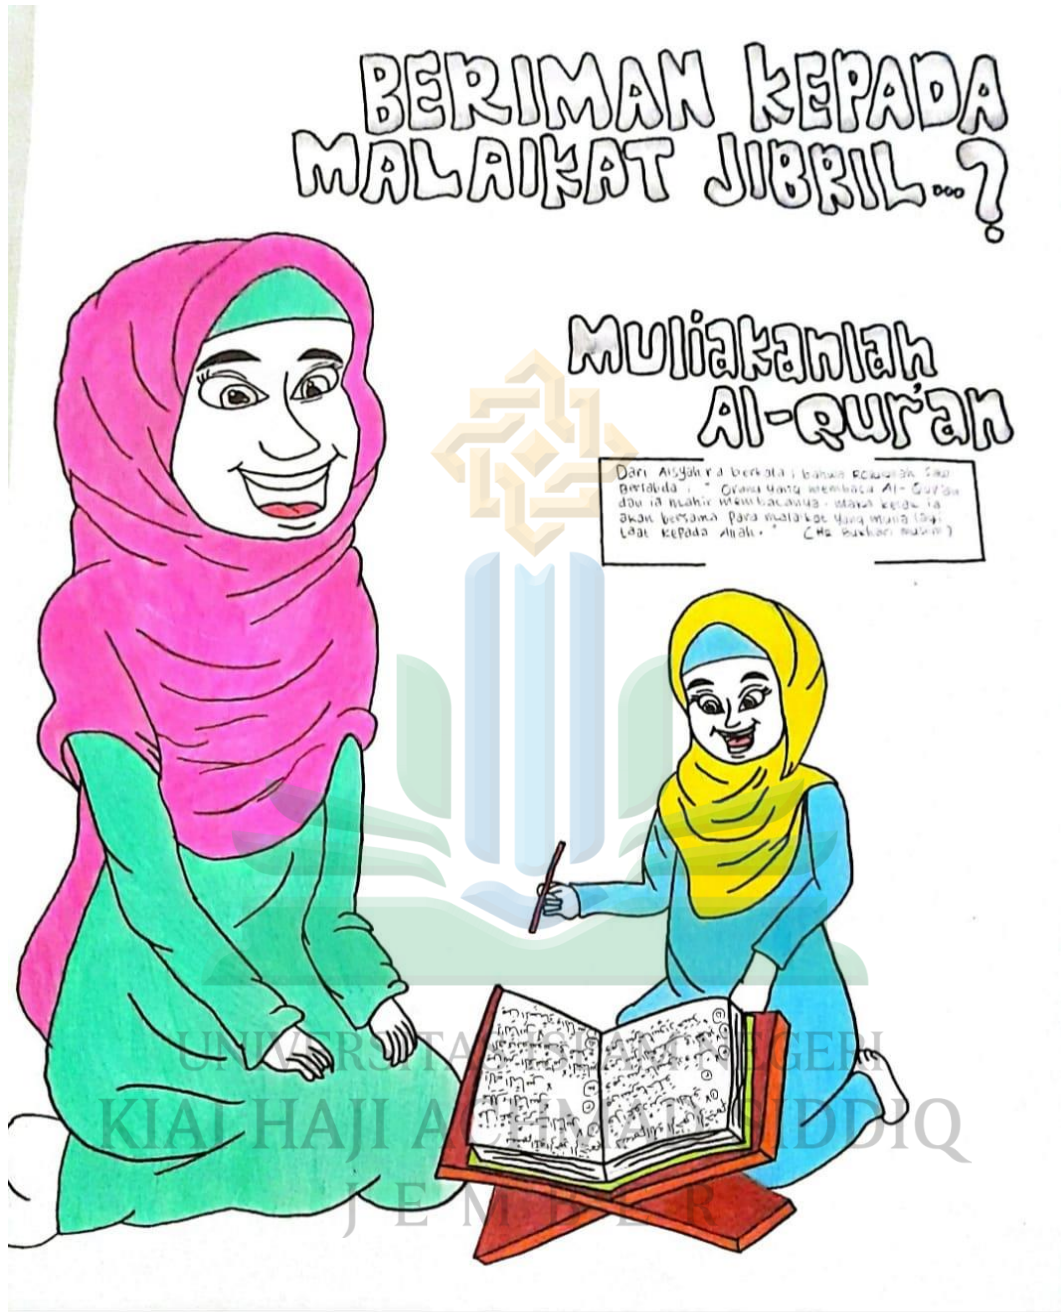 BERIMAN KEPADA
MALAIKAT JIBRIL...?
Muliakanlah
Al-Qur'an
Dari Aisyah r.a berkata : bahwa
Bersabda : " Orang yang membaca Al-Qur'an
dan ia mahir membacanya, maka kelak ia
akan bersama para malaikat yang mulia lagi
taat kepada Allah. " (HR Bukhari muslim)
UNIVERSITAS ISLAM NEGERI
KIAI HAJI ACHMAD SIDDIQ
JEMBER